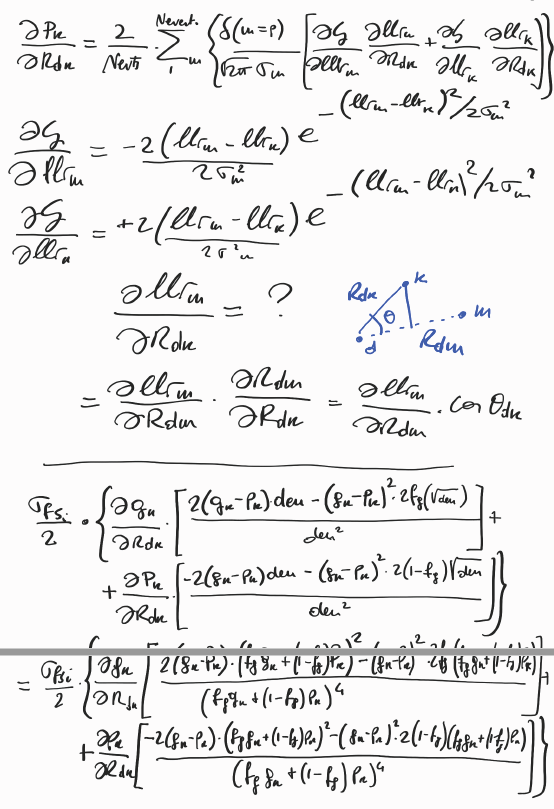 ∂Pₖ/∂R_dk = 2/Nevts · Σ₁^Nevert. ₘ { δ(m=p)/(√2π σₘ) [ ∂G/∂llrₘ ∂llrₘ/∂R_dk + ∂G/∂llrₖ ∂llrₖ/∂R_dk ] }
∂G/∂llrₘ = -2(llrₘ - llrₖ)/2σₘ² e^-(llrₘ - llrₖ)²/2σₘ²
∂G/∂llrₖ = +2(llrₘ - llrₖ)/2σ²ₘ e^-(llrₘ - llrₖ)²/2σₘ²
∂llrₘ/∂R_dk = ?
R_dk k θ d R_dm m
= ∂llrₘ/∂R_dm · ∂R_dm/∂R_dk = ∂llrₘ/∂R_dm · cos θ_dk
σ_fsi/2 · { ∂gₖ/∂R_dk · [ 2(gₖ-Pₖ)·den - (gₖ-Pₖ)²·2f_g(√den) / den² ] +
+ ∂Pₖ/∂R_dk · [ -2(gₖ-Pₖ)den - (gₖ-Pₖ)²·2(1-f_g)√den / den² ] }
= σ_fsi/2 · { ∂gₖ/∂R_dk [ 2(gₖ-Pₖ)·(f_g gₖ+(1-f_g)Pₖ)² - (gₖ-Pₖ)²·2f_g (f_g gₖ+(1-f_g)Pₖ) / (f_g gₖ+(1-f_g)Pₖ)⁴ ] +
+ ∂Pₖ/∂R_dk [ -2(gₖ-Pₖ)·(f_g gₖ+(1-f_g)Pₖ)² - (gₖ-Pₖ)²·2(1-f_g)(f_g gₖ+(1-f_g)Pₖ) / (f_g gₖ+(1-f_g)Pₖ)⁴ ] }